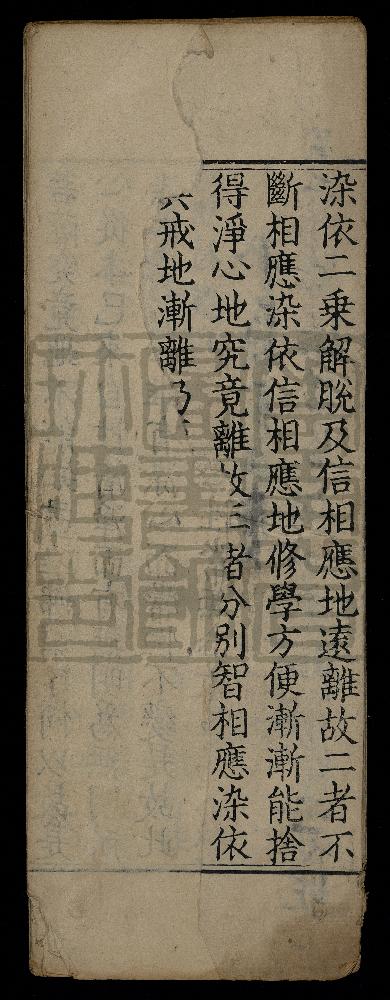 染依二乗解脫及信相應地遠離故二者不
斷相應染依信相應地修學方便漸漸能捨
得淨心地究竟離故三者分別智相應染依
戒地漸離乃